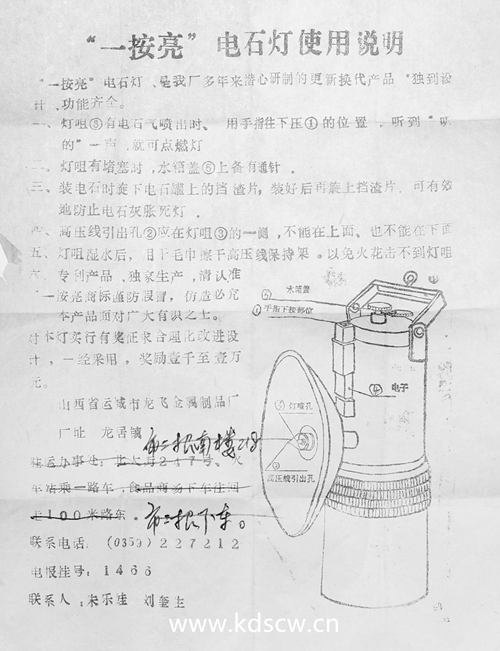 “一按亮”电石灯使用说明
“一按亮”电石灯、是我厂多年来潜心研制的更新换代产品
计、功能齐全。
一、灯咀③有电石气喷出时、用手指往下压①的位置、听到“
的”一声、就可点燃灯
二、灯咀有堵塞时,水箱盖⑤上备有通针.
三、装电石时旋下电石罐上的挡渣片,装好后再旋上挡渣片,可有效
地防止电石灰胀死灯.
四、高压线引出孔②应在灯咀③的一侧,不能在上面、也不能在下面
五、灯咀湿水后,用干毛巾擦干高压线保持架。以免火花击不到灯咀
六、专利产品、独家生产,请认准
“一按亮商标谨防假冒,仿造必究
本产品面对广大有识之士。
对本灯实行有奖征求合理化改进设
计,一经采用,奖励壹千至壹万
元。
水箱盖
手指下按部位
④ 电子
灯嘴孔
高压线引出孔
山西省运城市龙飞金属制品厂
厂址 龙居镇
市二招南楼218
驻运办事处:
217号、火
车站乘一路车,食品商场下车往回
走100米路东.
市二招下车。
联系电话:(0359)227212
电报挂号:1466
联系人:
www.kdscw.cn